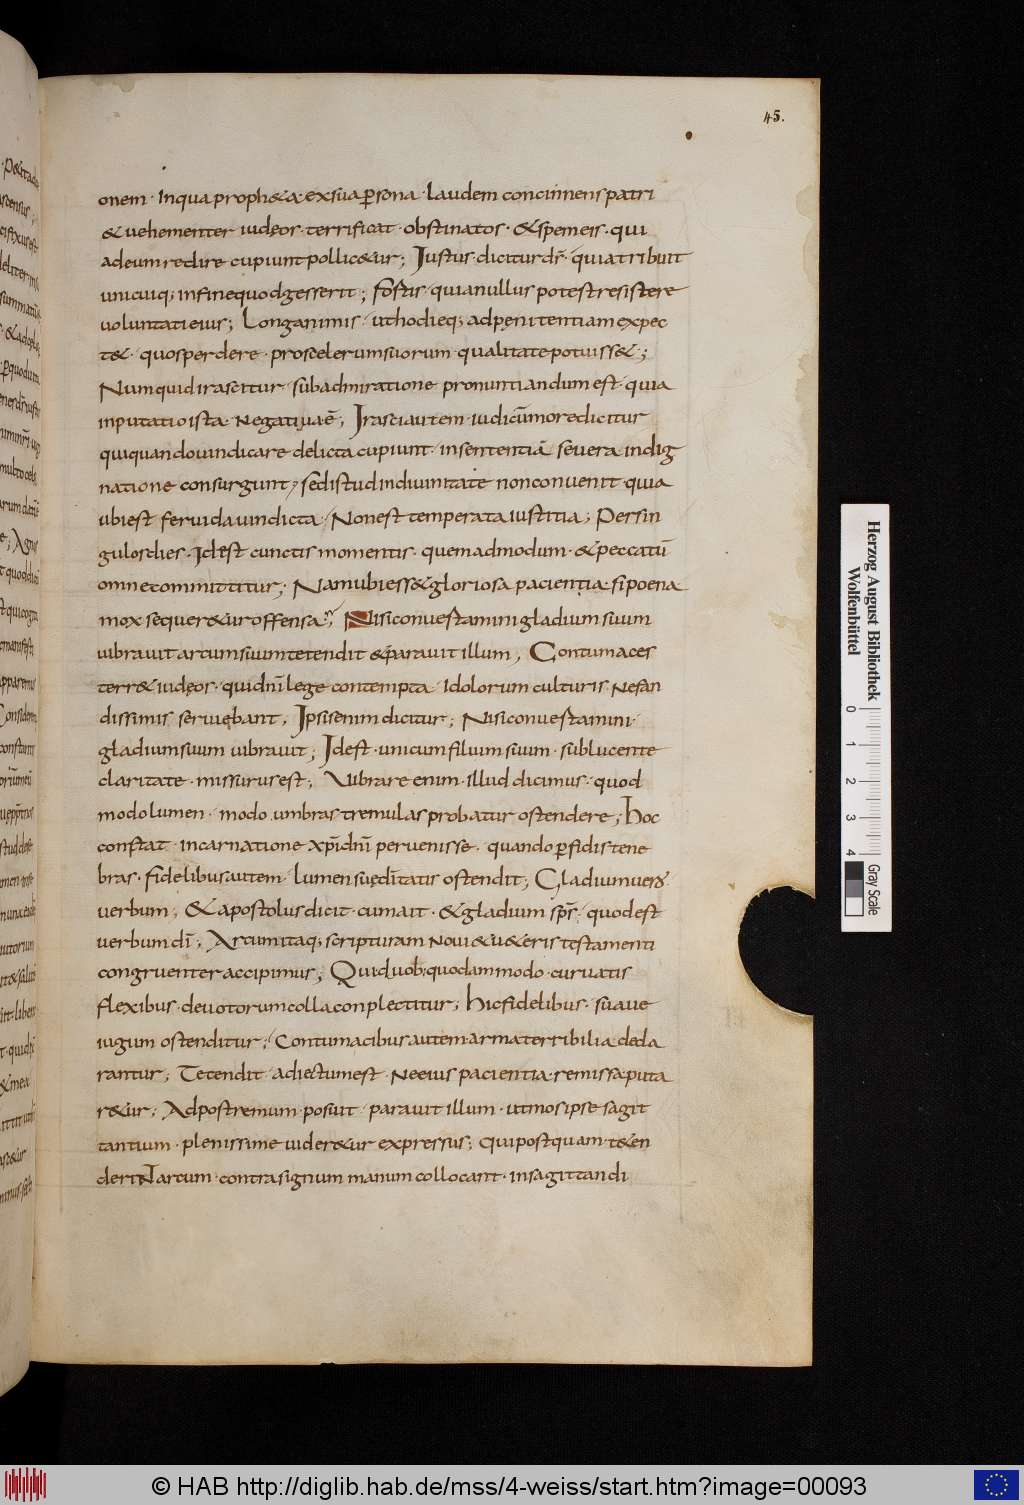 45.
onem · Inqua proph&a · exsua ꝑsona · laudem concinnens patri
& uehementer iudęos · terrificat · obstinatos · & spem eis · qui
ad eum redire cupiunt pollic&ur; Iustus · dicitur ds̄ · quia tribuit
unicuiq; in fine quod gesserit; fortis · quia nullus potest resistere
uoluntati eius; Longanimis · ut hodieq; ad pęnitentiam expec
t& · quos perdere · pro scelerum suorum · qualitate potuiss&;
Numquid irascitur · sub admiratione pronuntiandum est · quia
inputatio ista · Negatiua ē; Irasci autem · iudicū more dicitur
qui quando uindicare delicta cupiunt · in sententiā seuera indig
natione consurgunt; sed istud in diuinitate non conuenit · quia
ubi est feruida uindicta · Non est temperata iustitia; Per sin
gulos dies · Id est cunctis momentis · quemadmodum · & peccatū
omne committitur; Nam ubi ess& gloriosa pacientia · si poena
mox sequer&ur offensa; Nisi conuestamini gladium suum
uibrauit arcum suum tetendit & parauit illum; Contumaces
terr& iudęos · qui dn̄i lege contempta · Idolorum culturis · Nefan
dissimis seruębant; Ipsis enim dicitur; Nisi conuestamini ·
gladium suum uibrauit; Id est · unicum filium suum · sub lucente
claritate · missurus est; Vibrare enim · illud dicimus · quod
modo lumen · modo umbras tremulas probatur ostendere; hoc
constat · incarnatione xp̄i dn̄i peruenisse · quando ꝑfidis tene
bras · fidelibus autem · lumen suę dītatis ostendit; Gladium uero
uerbum; & apostolus dicit · cum ait · & gladium sps̄ · quod est
uerbum dī; Arcum itaq; scripturam Noui & u&eris testamenti
congruenter accipimus; Qui duob; quodammodo · curuatis
flexibus · deuotorum colla conplectitur; hic fidelibus · suaue
iugum ostenditur; Contumacibus autem arma terribilia decla
rantur; Tetendit · adiectum est · Ne eius pacientia · remissa puta
r&ur; Ad postremum · posuit · parauit illum · ut mos ipse sagit
tantium · plenissime uider&ur expressus; qui postquam t&en
derint arcum · contra signum manum collocant · in sagittandi
Herzog August Bibliothek
Wolfenbüttel
0 1 2 3 4
Gray Scale
© HAB http://diglib.hab.de/mss/4-weiss/start.htm?image=00093